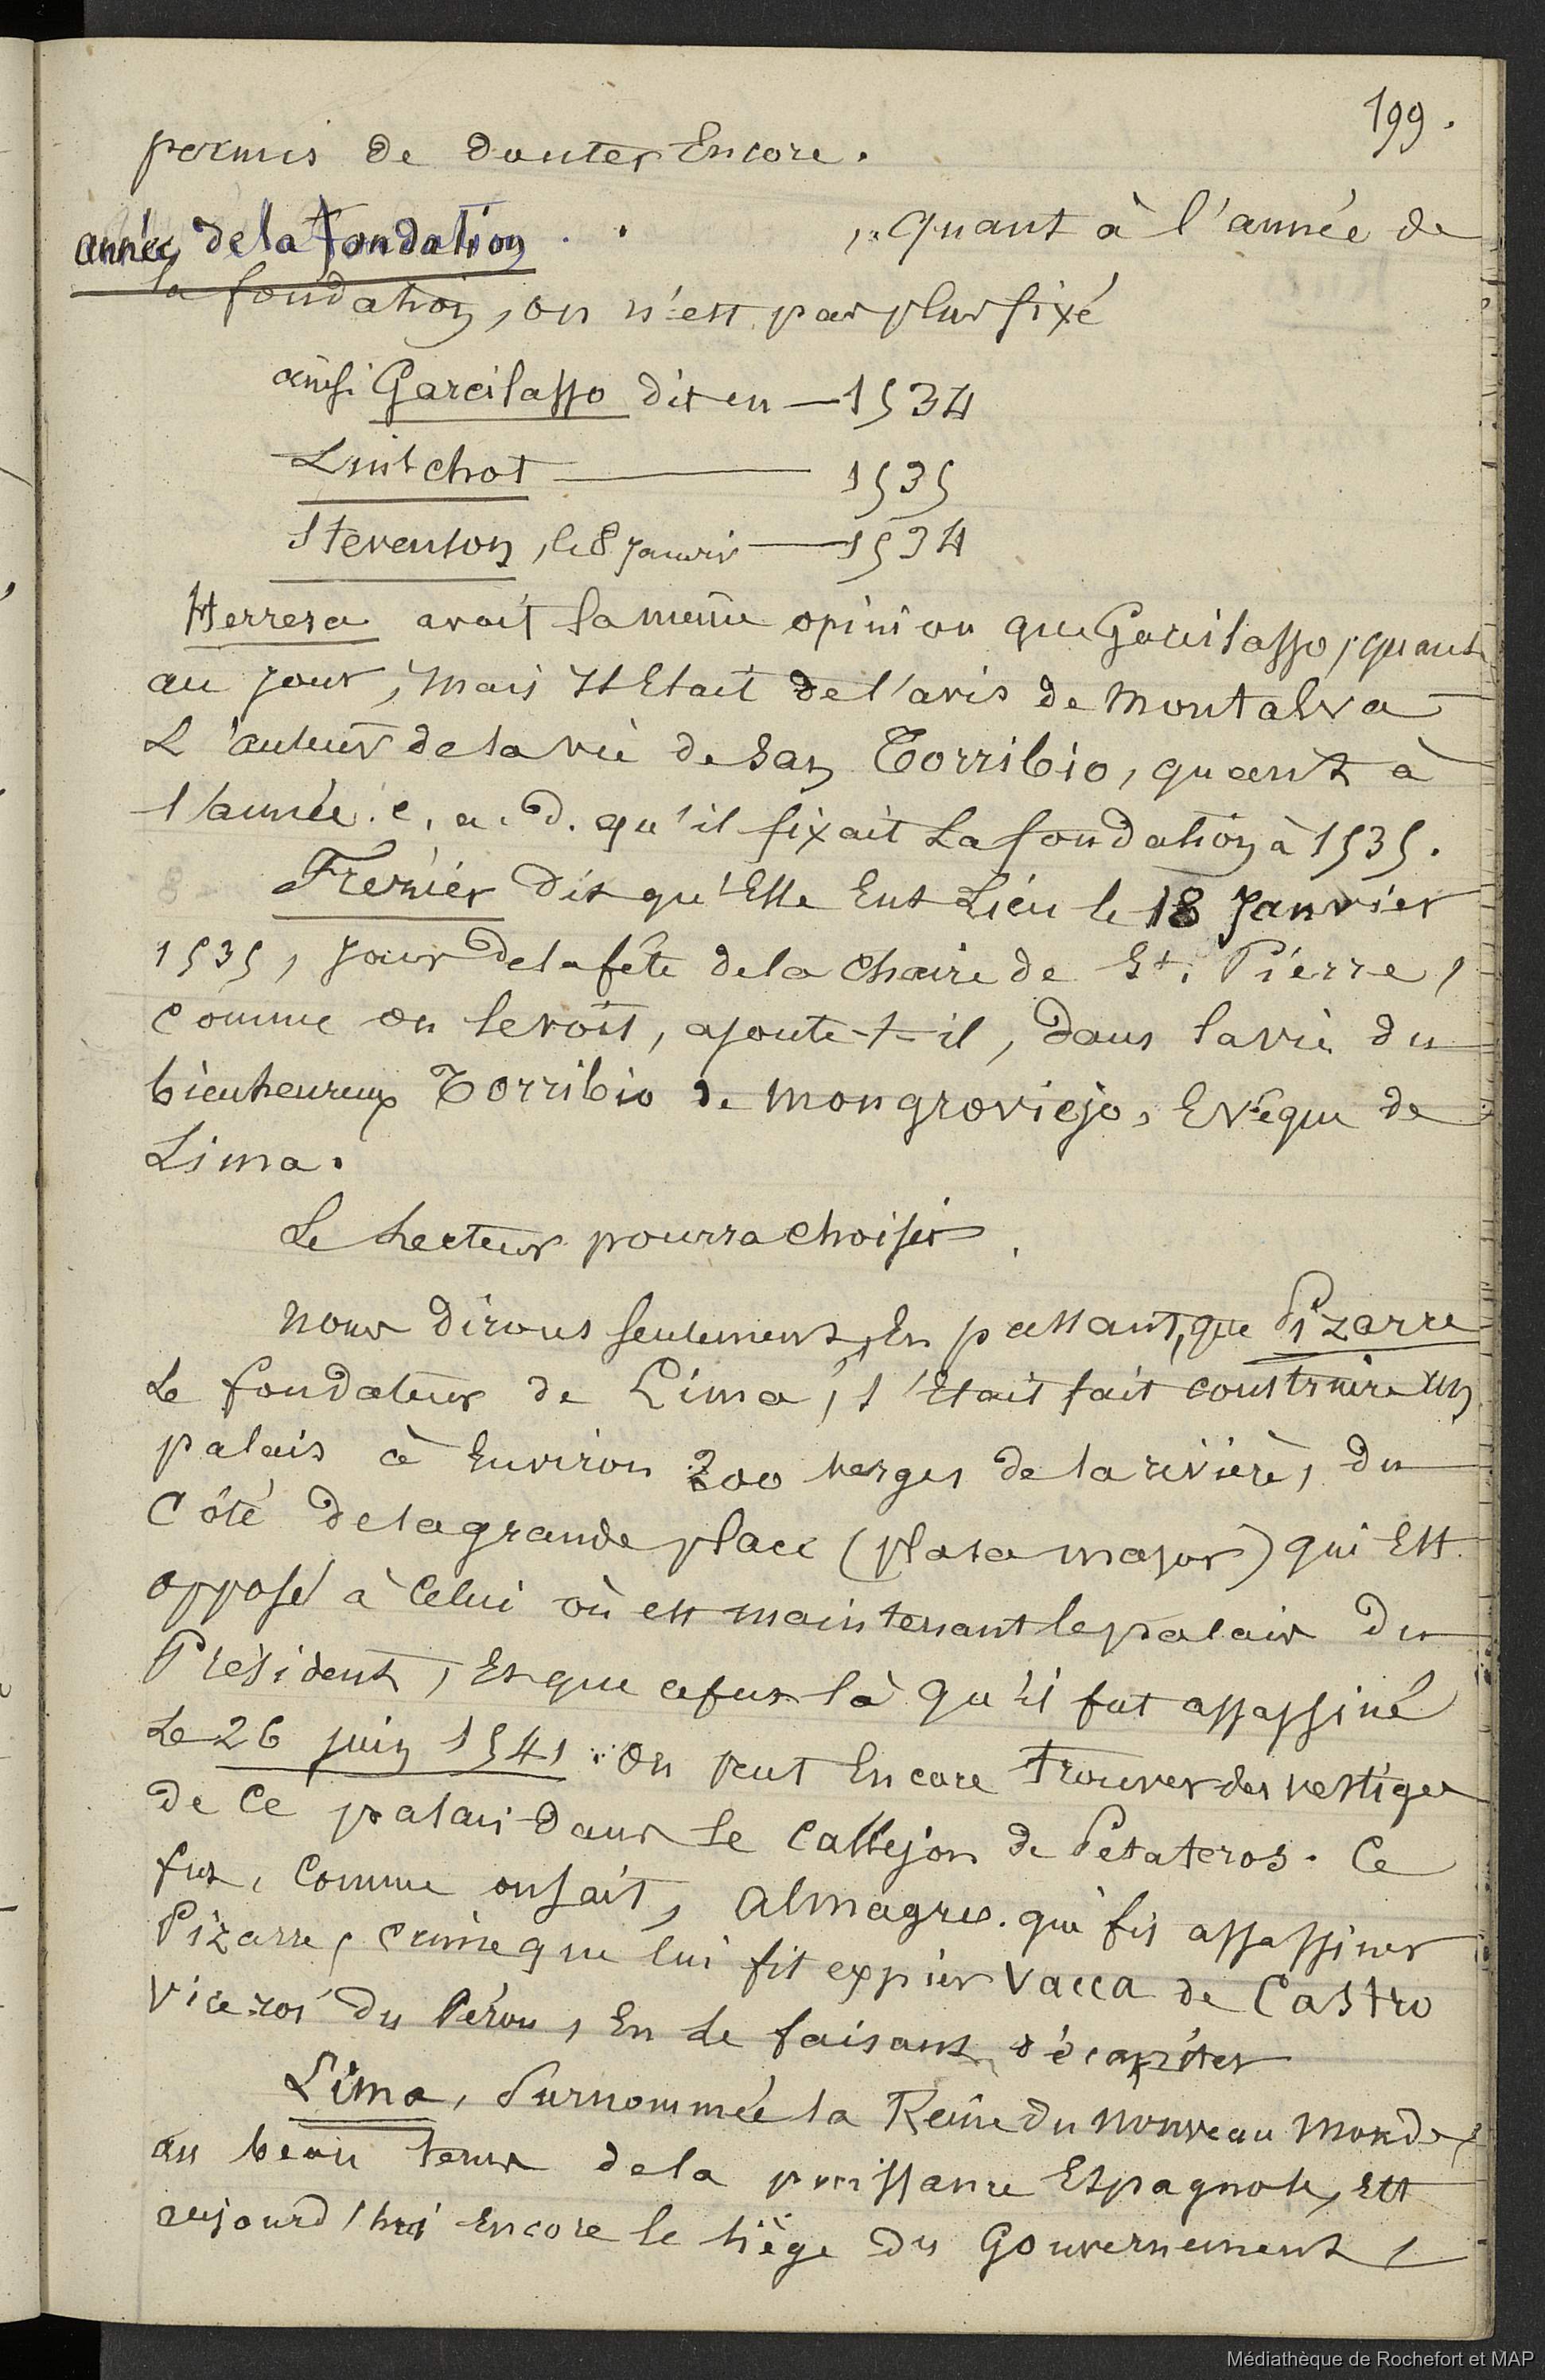 199.
permis de douter Encore.
année de la fondation . . , quant à l'année de
la fondation, on n'est pas plus fixé
ainsi Garcilasso dit en — 1534
Lintchot — 1535
Stevenson, le 8 Janvier — 1534
Herrera avait la même opinion que Garcilasso, quant
au jour, mais Il Etait de l'avis de Montalva
L'auteur de la vie de San Torribio, quant à
l'année. c. a. d. qu'il fixait la fondation à 1535.
Frezier dit qu'Elle Eut Lieu le 18 Janvier
1535, jour de la fête de la chaire de St. Pierre,
comme on le voit, ajoute-t-il, dans la vie du
bienheureux Torribio de Mongroviejo, Evêque de
Lima.
Le Lecteur pourra choisir.
Nous dirons seulement, En passant, que Pizarre
Le fondateur de Lima, s'Etait fait construire un
palais à Environ 200 verges de la rivière, du
Côté de la grande place (plasa major) qui Est
opposé à Celui où est maintenant le palais du
Président, Et que ce fut là qu'il fut assassiné
Le 26 juin 1541. On peut Encore trouver des vestiges
de Ce palais dans le Callejon de Petateros. Ce
fut, Comme on sait, Almagro. qui fit assassiner
Pizarre, crime que lui fit expier Vacca de Castro
Vice-roi du Pérou, En Le faisant décapiter
Lima, Surnommée la Reine du Nouveau Monde,
au beau temps de la puissance Espagnole, Est
aujourd'hui Encore le siège du Gouvernement,
Médiathèque de Rochefort et MAP